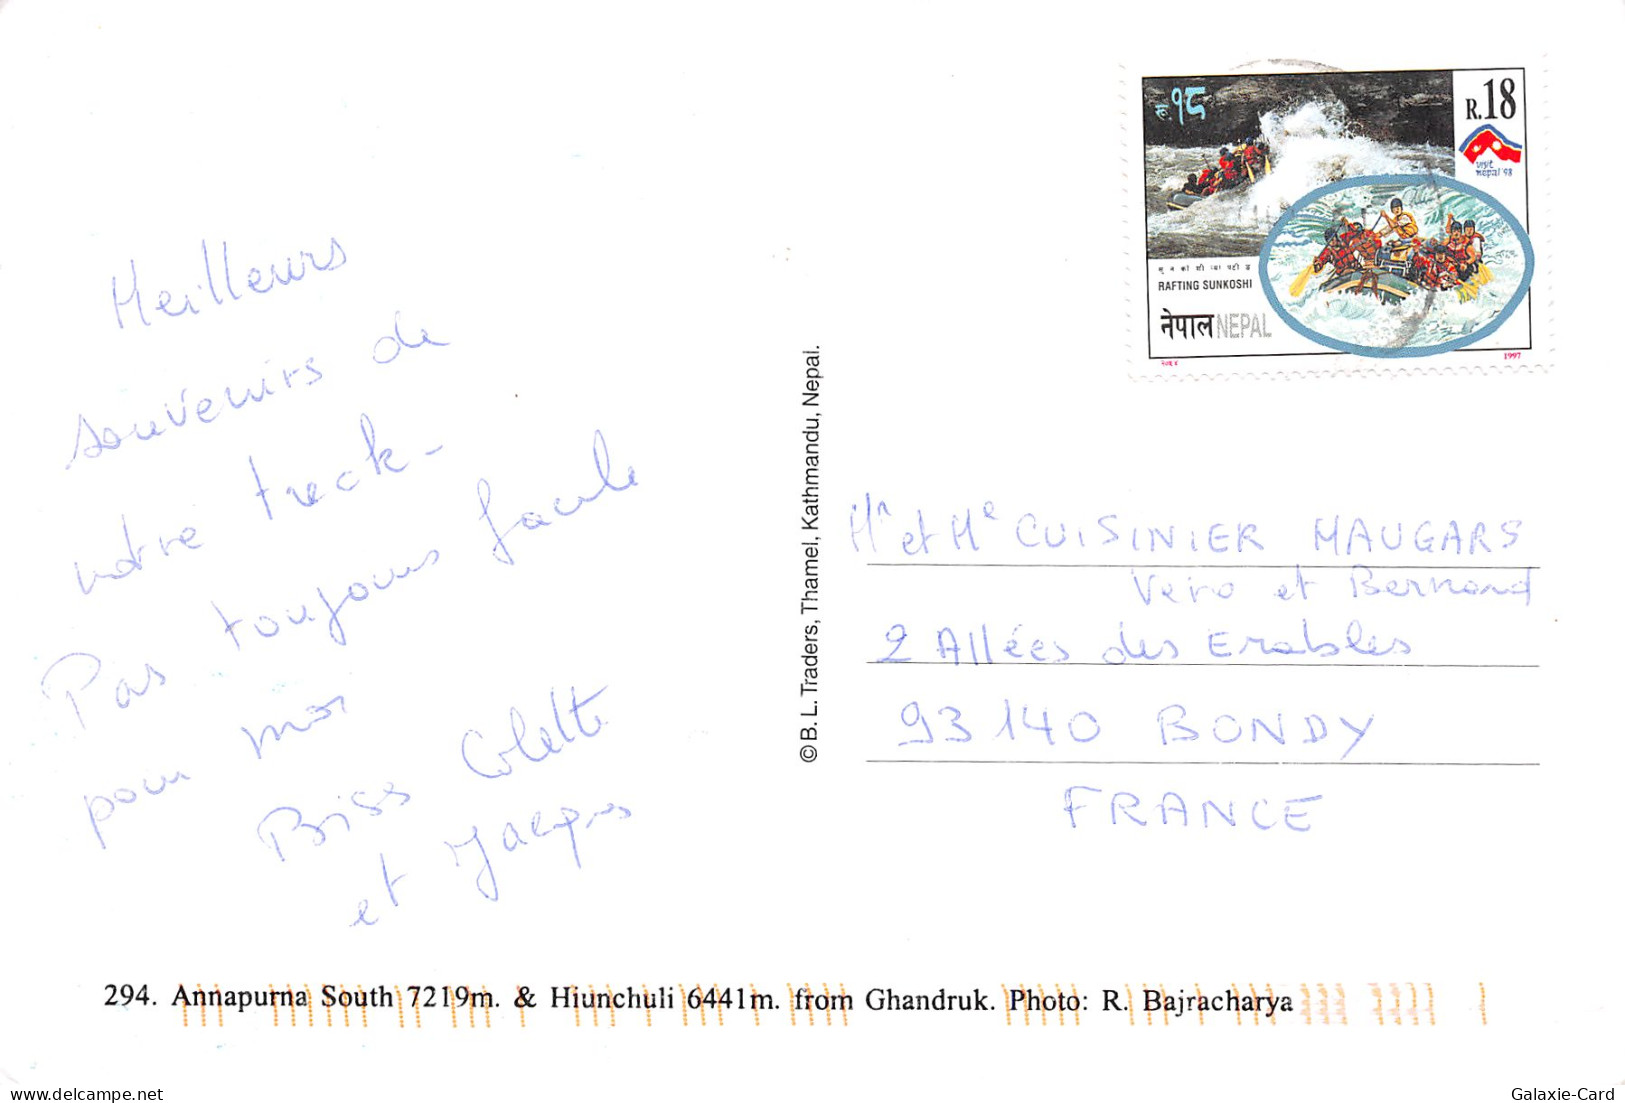 Meilleurs
souvenirs de
notre treck-
Pas toujours facile
pour moi
Bises Colette
et Jacques
© B. L. Traders, Thamel, Kathmandu, Nepal.
रू.१८
R.18
visit
nepal '98
सुनकोशी र्‍याफ्टीङ्ग
RAFTING SUNKOSHI
नेपाल NEPAL
1997
Mr et Me CUISINIER MAUGARS
Vero et Bernard
2 Allées des Erables
93140 BONDY
FRANCE
294. Annapurna South 7219m. & Hiunchuli 6441m. from Ghandruk. Photo: R. Bajracharya
Galaxie-Card